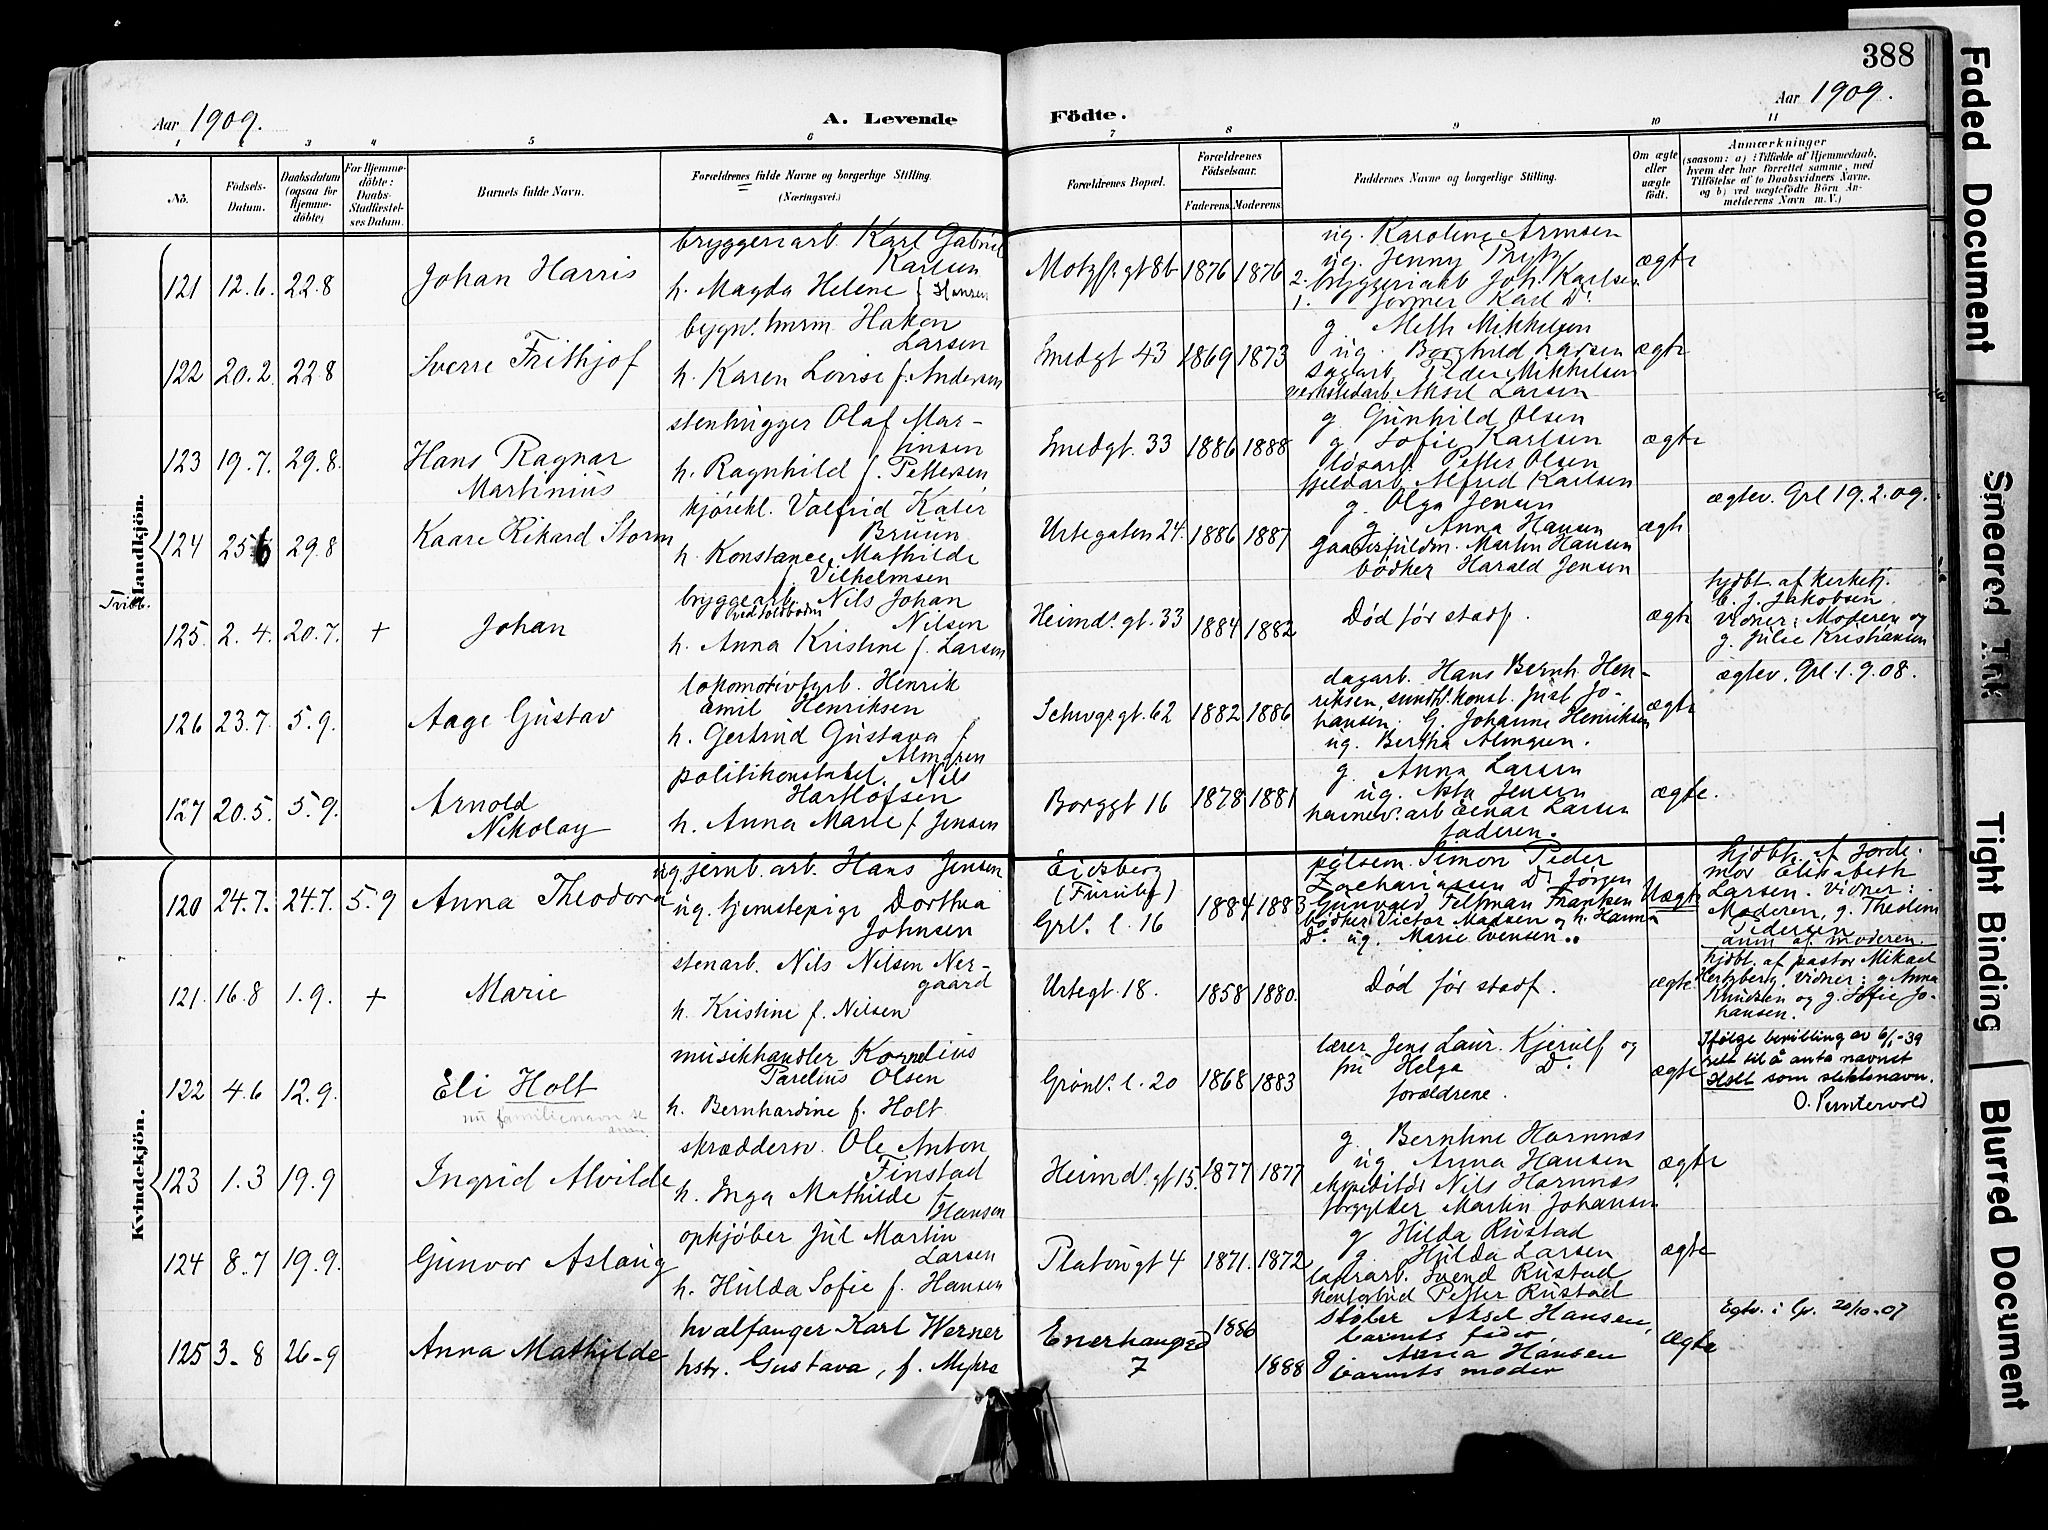 388
Aar 1909.
A. Levende
Födte.
Aar 1909.
1 2 3 4 5 6 7 8 9 10 11
No.
Födsels-Datum.
Daabsdatum (ogsaa for Hjemme-döbte)
For Hjemme-döbte: Daabs-Stadfæstel-ses Datum.
Barnets fulde Navn.
Forældrenes fulde Navne og borgerlige Stilling.
(Næringsvei.)
Forældrenes Bopæl.
Forældrenes Födselsaar.
Faderens. Moderens.
Faddernes Navne og borgerlige Stilling.
Om ægte eller uægte födt.
Anmærkninger
(saasom: a) : Tilfælde af Hjemmedaab, hvem der har forrettet samme, med Tilföielse af to Daabsvidners Navne, og b) ved uægtefödte Börn An-melderens Navn m. V.)
Mandkjön.
121 12.6. 22.8
Johan Harris
bryggeriarb. Karl Gabriel
Karlsen
h. Magda Helene f. Hansen
Motzf. gt 8b 1876 1876
ug. Karoline Armsen
ug. Jenny
2. bryggeriarb Joh. Karlsen
1. former Karl Do
ægte
122 20.2. 22.8
Sverre Frithjof
bygn. tmrm. Haken
Larsen
h. Karen Lovise f. Andersen
Smedgt 43 1869 1873
g. Meth Mikkelsen
ug. Borghild Larsen
sagarb. Peder Mikkelsen
verkstedarb. Aksel Larsen
ægte
123 19.7. 29.8.
Hans Ragnar
Martinius
stenhugger Olaf Mar-
tinsen
h. Ragnhild f. Pettersen
Smedgt. 33 1886 1888
g. Gunhild Olsen
g. Sofie Karlsen
løsarb. Petter Olsen
fjeldarb. Alfred Karlsen
ægte
124 25.6 29.8
Kaare Rikard Storm
kjørekl. Valfrid
Bruun
h. Konstance Mathilde
f. Vilhelmsen
Urtegaten 24. 1886 1887
g. Olga Jensen
g. Anna Hansen
Martin Hansen
bødker Harald Jensen
ægte
ægtev. Grl 19.2.09.
Tvill.
125. 2.4. 20.7. +
Johan
bryggearb. Nils Johan
ved toldboden Nilsen
h. Anna Kristine f. Larsen
Heimd. gt. 33 1884 1882
Død før stadf.
ægte
hjdbt. af kirketj.
C. J. Jakobsen
Vidner: Moderen og
g. Julie Kristiansen
126 23.7. 5.9.
Aage Gustav
lokomotivfyrb. Henrik
Emil Henriksen
h. Gertrud Gustava f
Almgren
Schwgs gt. 62 1882 1886
dagarb. Hans Bernh. Hen-
riksen, sundh. konst. Just Jo-
hansen. G. Johanne Henriksen
ug. Bertha Almgren.
ægte
ægtev. Grl. 1.9.08.
127 20.5. 5.9.
Arnold
Nikolay
politikonstabel. Nils
h. Anna Marie f. Jensen
Borggt 16 1878 1881
g. Anna Larsen
ug. Asta Jensen
havnev. arb Einar Larsen
faderen.
ægte.
Kvindekjön.
120 24.7. 24.7. 5.9
Anna Theodora
ug jernb. arb. Hans Jensen
ug. tjenestepige Dorthea
Johnsen
Eidsberg
Grl. l. 16 1884 1883
pølsem. Simon Peder
Zachariassen Do Jørgen
Gunvald Feltman Franken
bødker Victor Madsen og h. Hanna
Do ug. Marie Evensen..
Uægte
hjdbt. af Jorde-
mor Elisabeth
Larsen. Vidner:
Moderen, g. Theoline
Pedersen
anm. af moderen.
121. 16.8 1.9. +
Marie
stenarb. Nils Nilsen Ner-
gaard
h. Kristine f. Nilsen
Urtegt. 18. 1858 1880.
Død før stadf.
ægte.
hjdbt. af pastor Mikael
Hertzberg. Vidner: g. Anna
Knudsen og g. Sofie Jo-
hansen.
122 4.6 12.9.
Eli Holt
nu familienavn se
anm
musikhandler Kornelius
Parelius Olsen
h. Bernhardine f. Holt
Grønl. l. 20 1868 1883
lærer Jens Laur. Kjerulf og
fru Helga Do.
forældrene.
ægte
Ifølge bevilling av 6/1-39
rett til å anta navnet
Holt som slektsnavn.
123 1.3 19.9
Ingrid Alvilde
skræddersv. Ole Anton
Finstad
h. Inga Mathilde
f. Hansen
Heimd. gt 15. 1877 1877
g. Berntine Hornnæs
ug Anna Hansen
ekspeditør Nils Hornnæs
forgylder Martin Johansen
ægte
124 8.7 19.9.
Gunvor Aslaug
opkjøber Jul Martin
Larsen
h. Hulda Sofie f. Hansen
Platougt 4 1871. 1872
g Hilda Rustad
g. Hulda Larsen
lagerarb. Svend Rustad
kontorbud Petter Rustad
ægte
125 3-8 26-9
Anna Mathilde
hvalfanger Karl Werner
hstr. Gustava, f. Myhre
Enerhaugsgd
7
1886
1888
støber Aksel Hansen,
barnets fader,
g Anna Hansen
barnets moder
ægte
Egtv. i Gr. 20/10-07
Faded Document
Smeared Ink
Tight Binding
Blurred Document